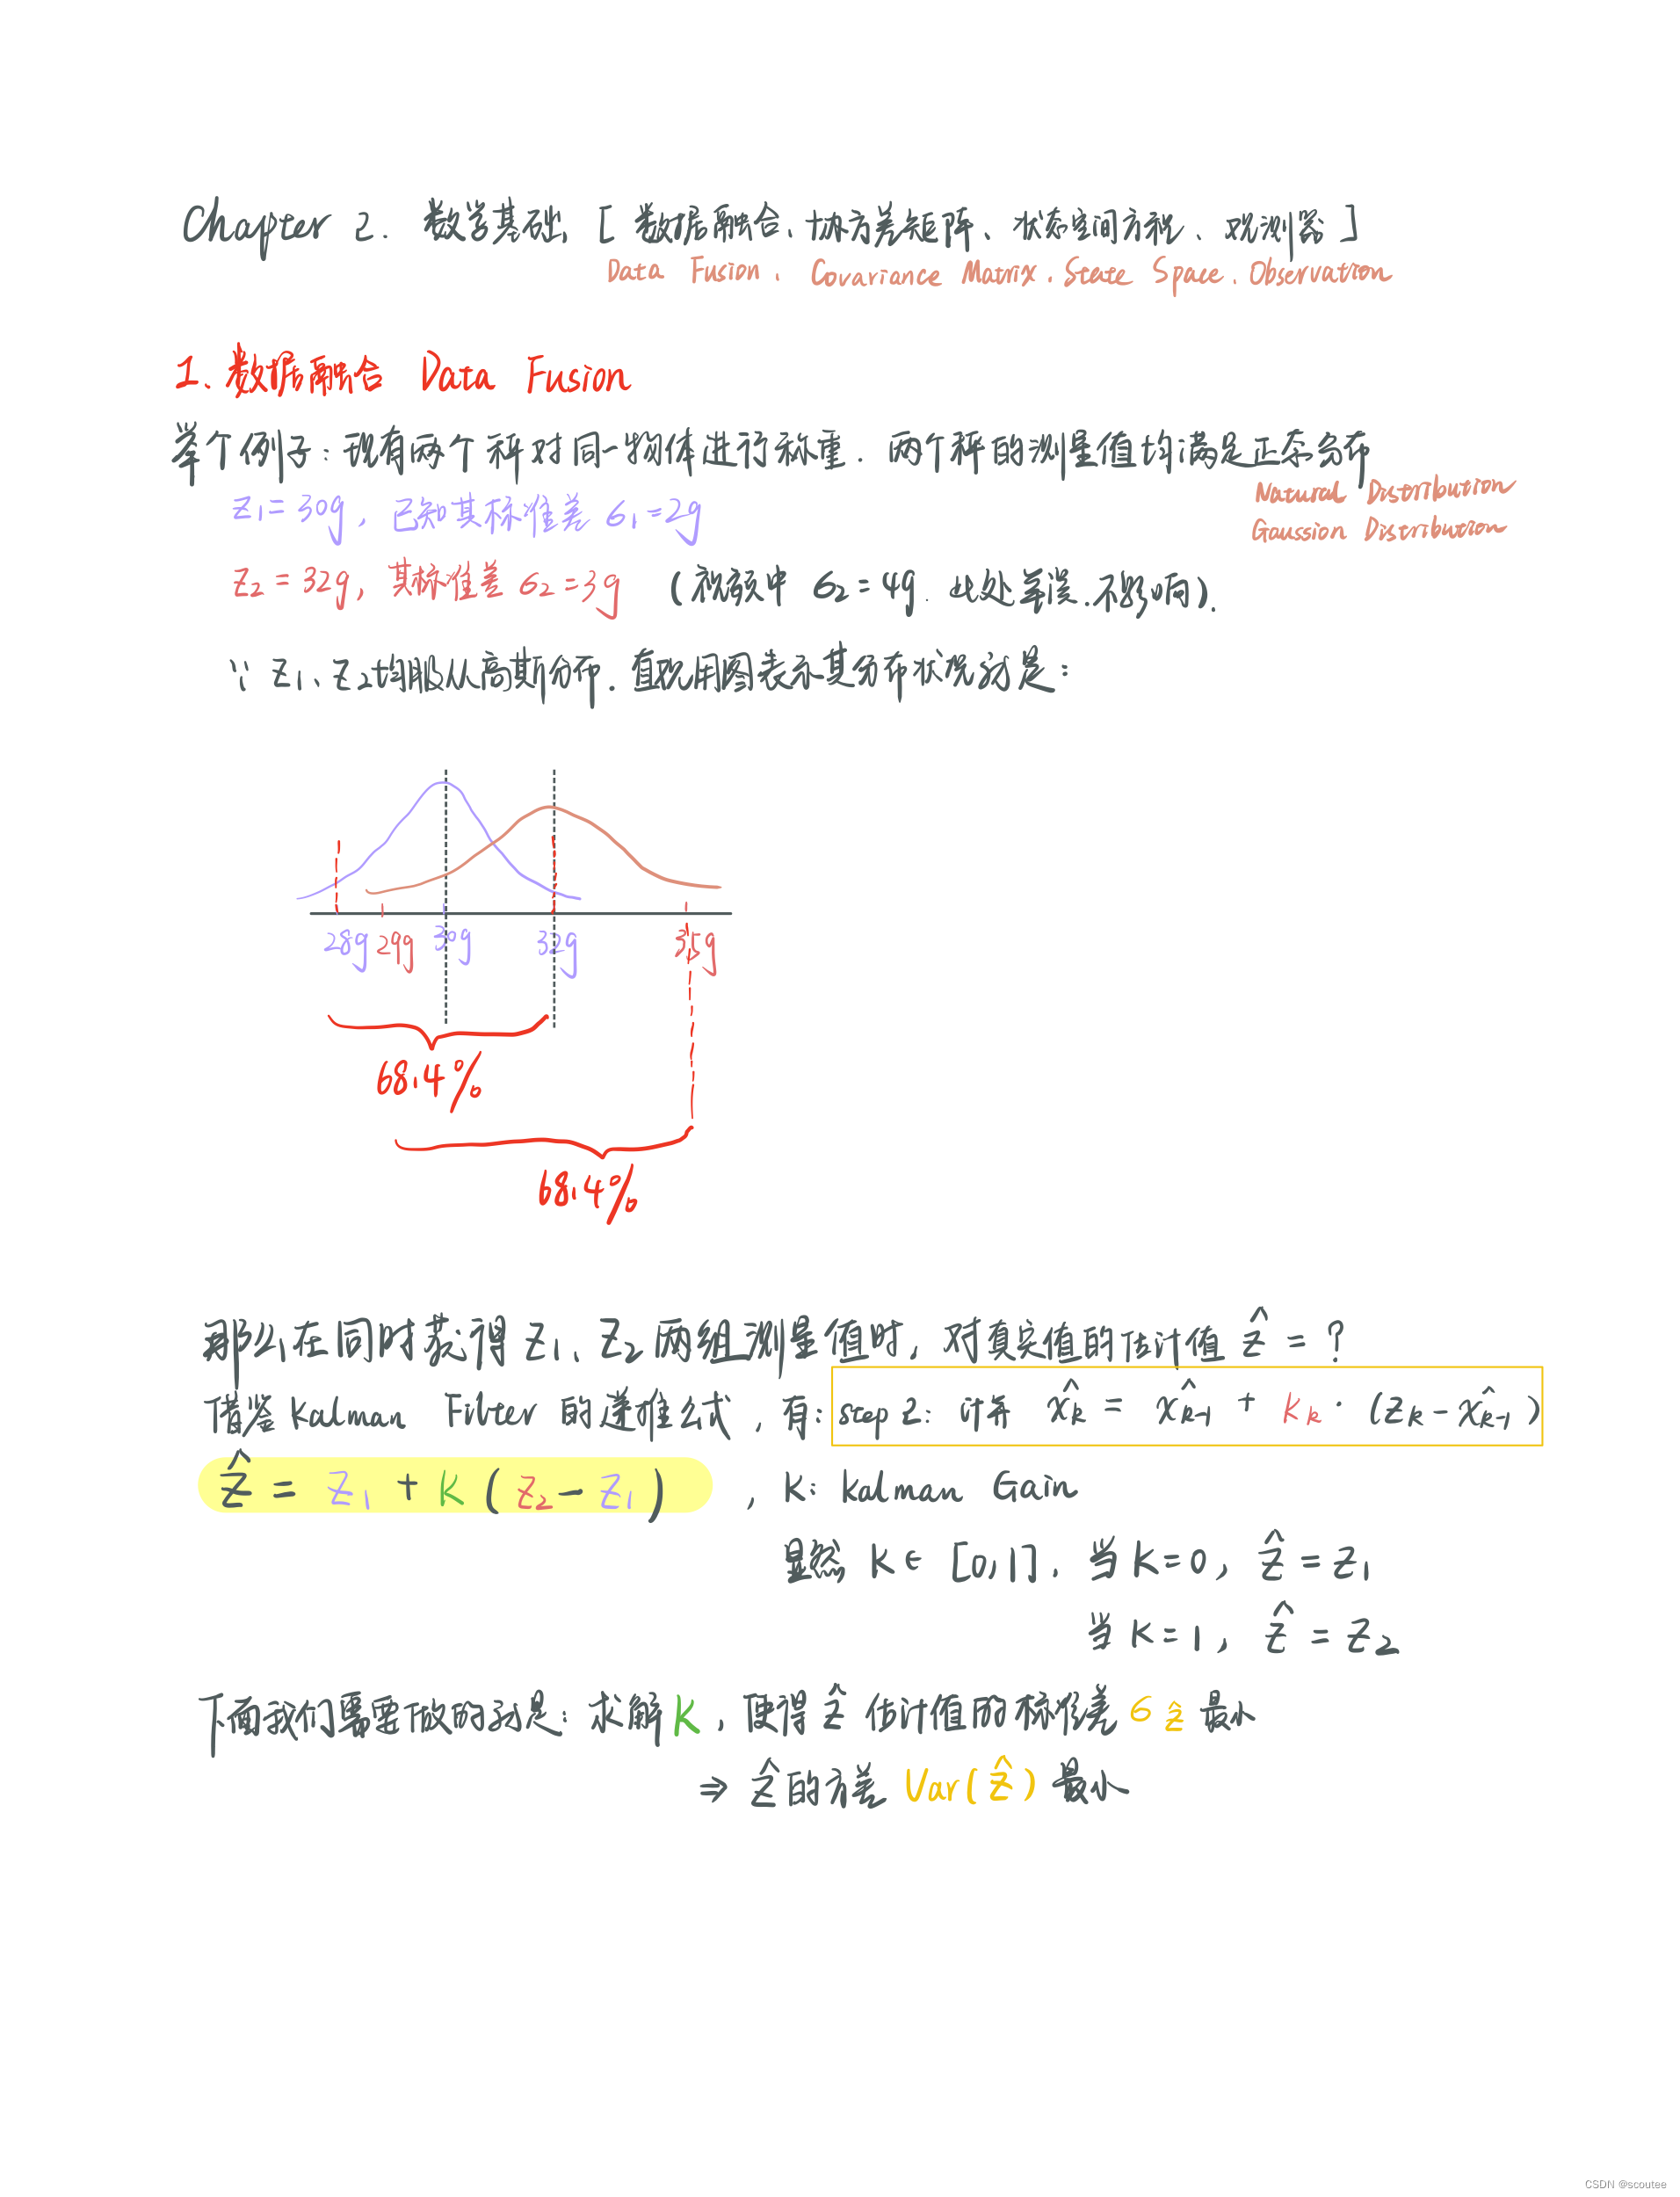 Chapter 2. 数学基础 [ 数据融合、协方差矩阵、状态空间方程、观测器 ]
Data Fusion、Covariance Matrix、State Space、Observation
1、数据融合 Data Fusion
举个例子：现有两个秤对同一物体进行称重. 两个秤的测量值均满足正态分布
Natural Distribution
z₁ = 30g, 已知其标准差 σ₁ = 2g
Gaussion Distribution
z₂ = 32g, 其标准差 σ₂ = 3g (视频中 σ₂ = 4g. 此处笔误. 不影响).
∵ z₁、z₂均服从高斯分布. 直观用图表示其分布状况就是：
28g 29g 30g 32g 35g
68.4%
68.4%
那么在同时获得 z₁、z₂ 两组测量值时, 对真实值的估计值 ẑ = ?
借鉴 Kalman Filter 的递推公式, 有: step 2: 计算 x̂ₖ = x̂ₖ₋₁ + Kₖ · (zₖ - x̂ₖ₋₁)
ẑ = z₁ + K ( z₂ - z₁ ) , K: Kalman Gain
显然 K ∈ [0,1], 当 K=0, ẑ = z₁
当 K=1, ẑ = z₂
下面我们需要做的就是: 求解 K, 使得 ẑ 估计值的标准差 σ_ẑ 最小
⇒ ẑ 的方差 Var(ẑ) 最小
CSDN @scoutee